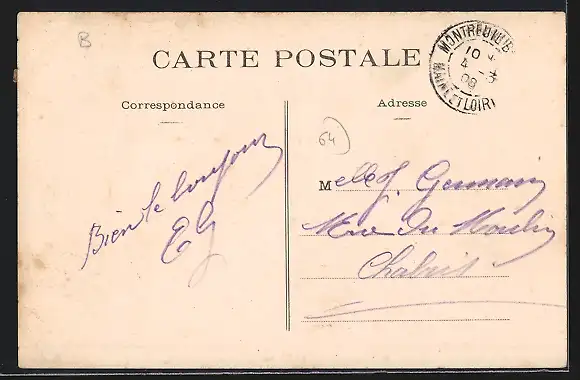 B
CARTE POSTALE
MONTREUIL-B
10
4 -3
09
MAINE ET LOIRE
Correspondance
Adresse
64
Bien le bonjour
EG
Melle J. Germain
Rue du Moulin
Chalais